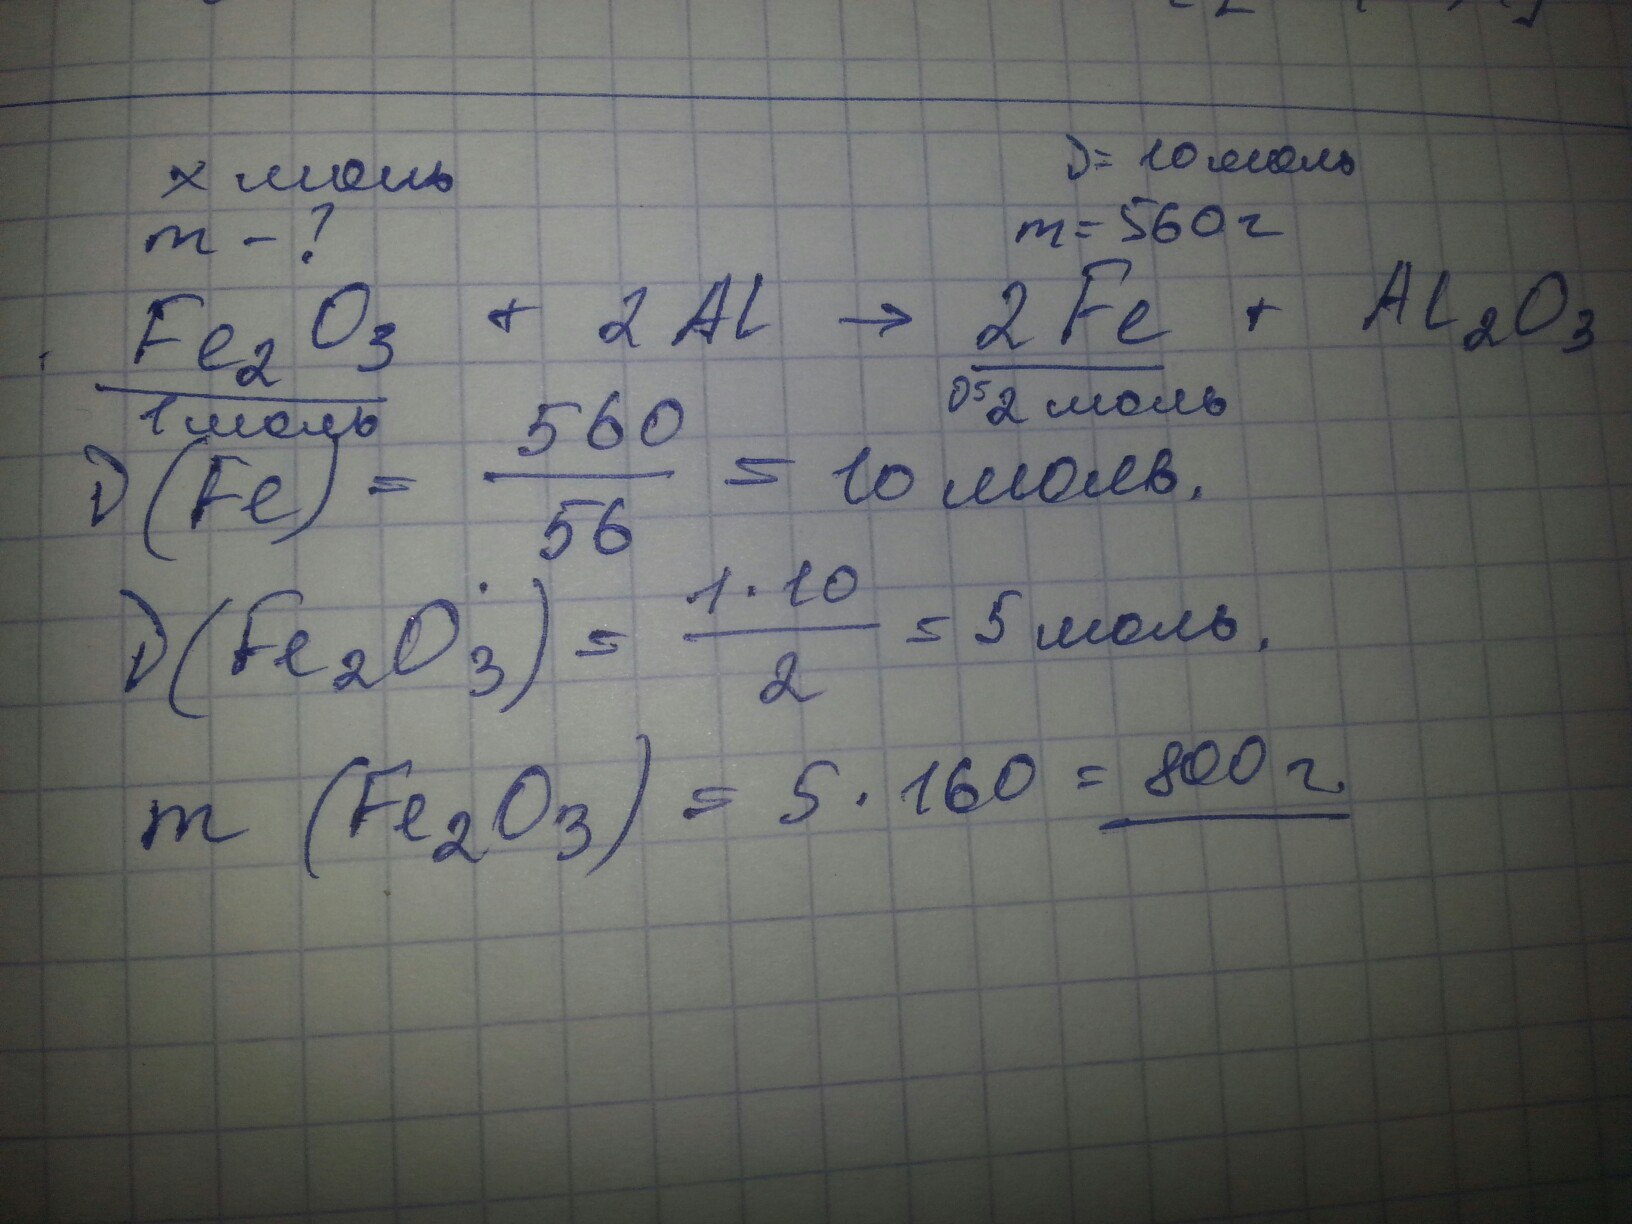 x моль
m - ?
ν= 10 моль
m= 560 г
Fe2O3 + 2Al → 2Fe + Al2O3
1 моль 2 моль
ν(Fe) = 560/56 = 10 моль.
ν(Fe2O3) = 1·10/2 = 5 моль.
m (Fe2O3) = 5·160 = 800 г